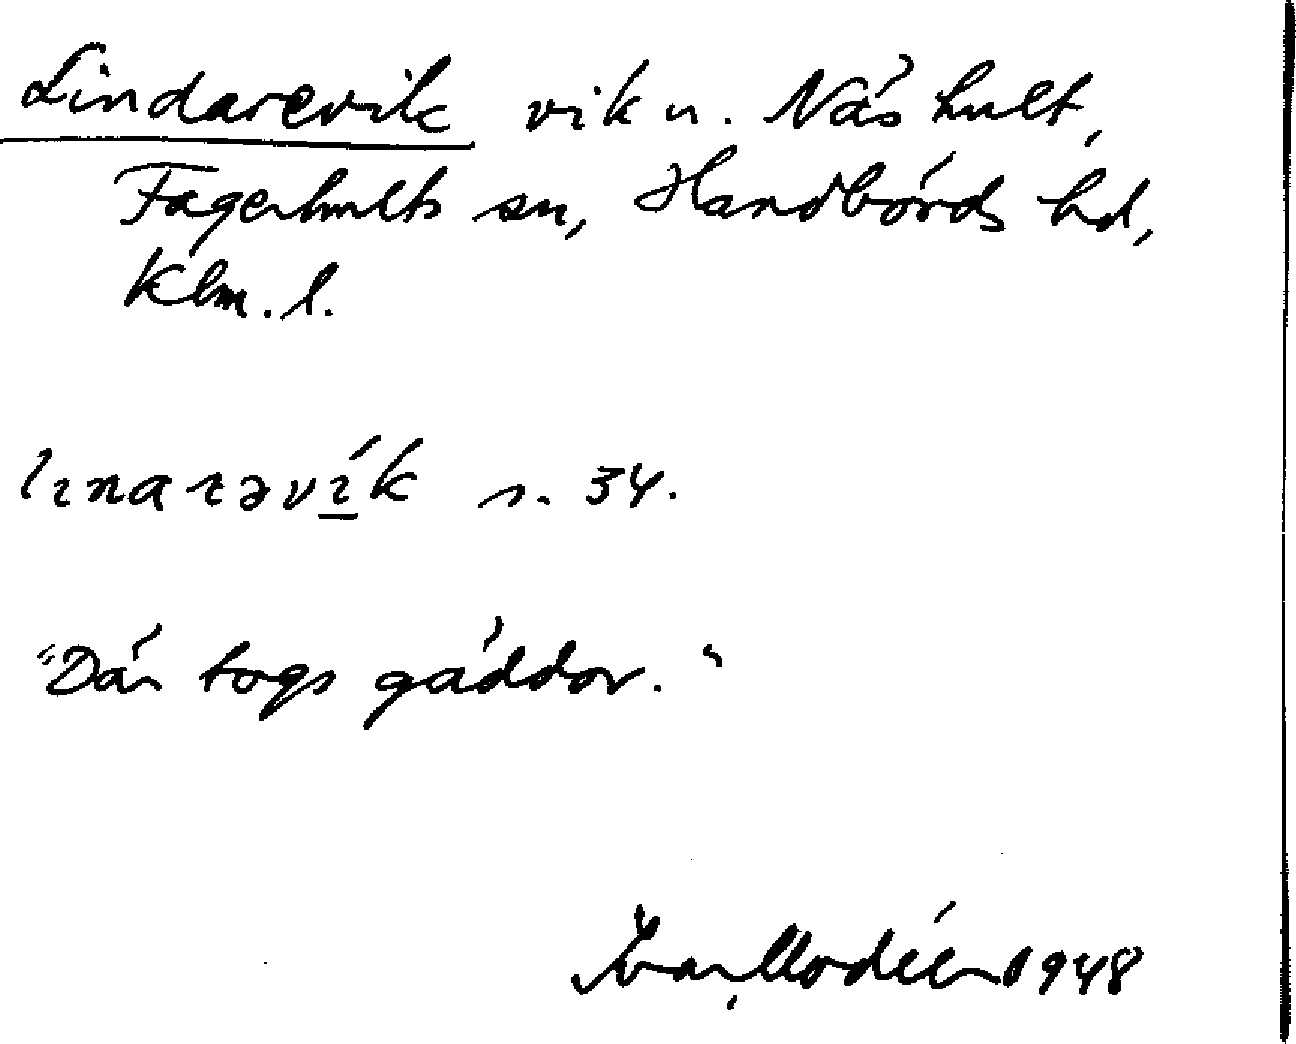 Lindarevik vik u. Näshult,
Fagerhults sn, Handbörds hd,
Klm. l.
lınarəvı̱́k s. 34.
"Där togs gäddor."
Ivar Modéer 1948